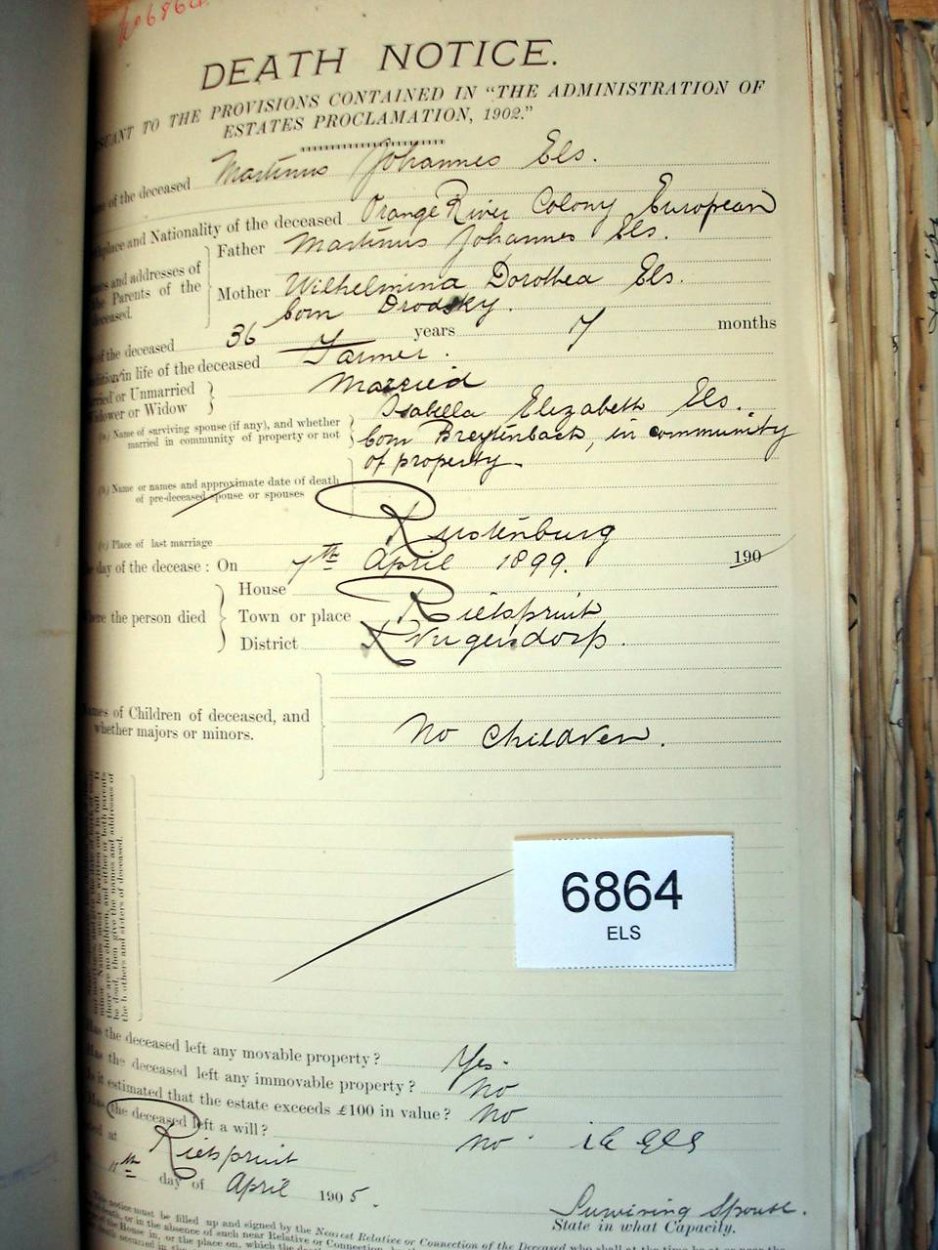 No 6864
DEATH NOTICE.
TO THE PROVISIONS CONTAINED IN "THE ADMINISTRATION OF
ESTATES PROCLAMATION, 1902."
of the deceased Martinus Johannes Els.
and Nationality of the deceased Orange River Colony European
and addresses of the Parents of the deceased. Father Martinus Johannes Els.
Mother Wilhelmina Dorothea Els.
born Drodsky.
of the deceased 36 years 7 months
in life of the deceased Farmer.
or Unmarried Married
or Widow
Name of surviving spouse (if any), and whether married in community of property or not Isabella Elizabeth Els.
born Breytenbach, in community
of property.
Name or names and approximate date of death
of pre-deceased spouse or spouses
Place of last marriage Rustenburg
day of the decease: On 7th April 1899. 190
House
the person died Town or place Rietspruit
District Krugersdorp.
of Children of deceased, and
whether majors or minors. No Children.
6864
ELS
the deceased left any movable property? Yes.
the deceased left any immovable property? No
estimated that the estate exceeds £100 in value? No
the deceased left a will? No
at Rietspruit
day of April 1905.
Surviving Spouse.
State in what Capacity.
notice must be filled up and signed by the Nearest Relative or Connection of the Deceased who shall at the time